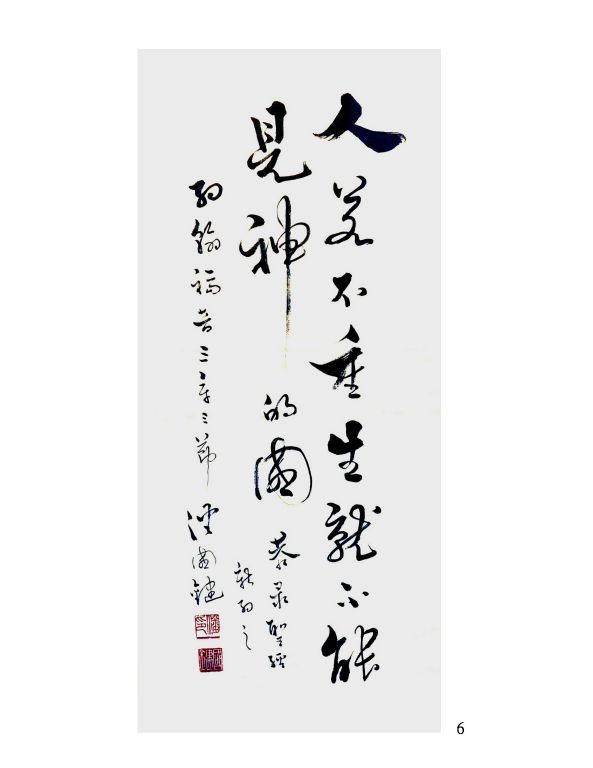 人若不重生就不能
見神的國
恭录聖經
新約之
約翰福音三章三節
潘國鍵
6